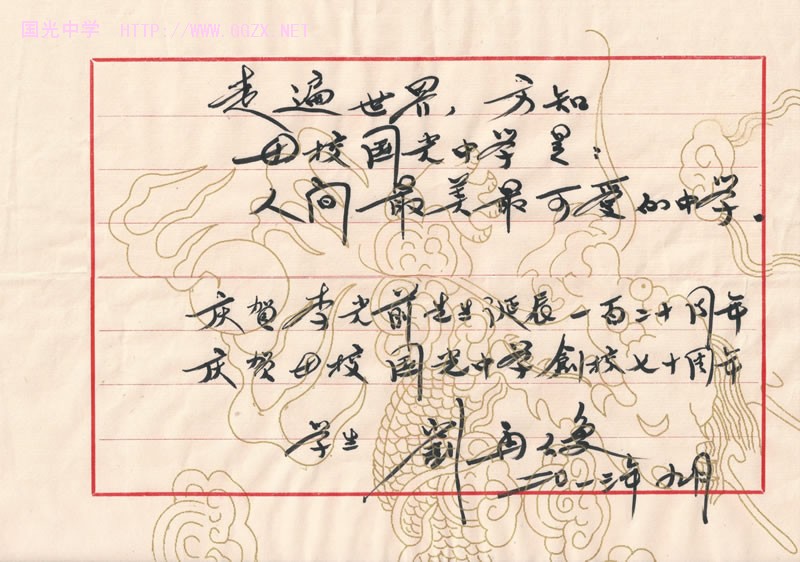 国光中学 HTTP://WWW.GGZX.NET
走遍世界，方知
母校国光中学是：
人间最美最可爱的中学。
庆贺李光前先生诞辰一百二十周年
庆贺母校国光中学創校七十周年
学生 劉再復
二〇一三年九月